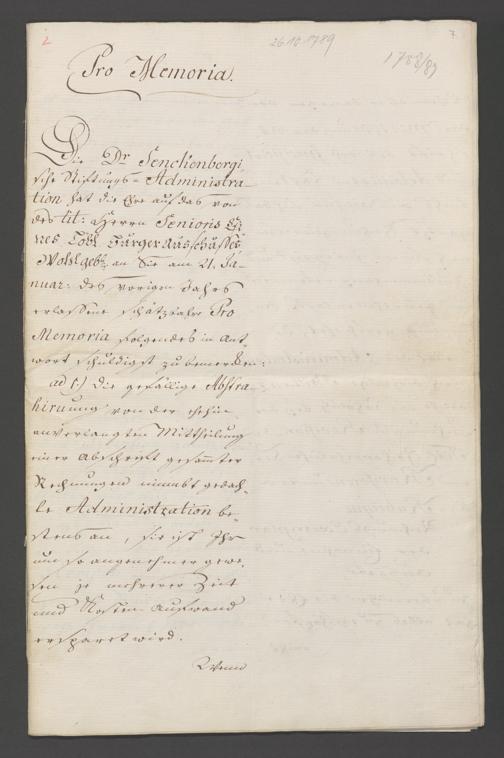 2
26.10.1789
7
1788/89
Pro Memoria.
Die Dr Senckenbergi
sche Stiftungs-Administra-
tion hat die Ehre auf das von
des tit: Herrn Senioris Ei-
nes Löbl. Bürger Ausschusses
Wohlgeb. an Sie am 21. Ja-
nuar: des vorigen Jahrs
erlassene schätzbahre Pro
Memoria folgendes in Ant
wort schuldigst zu bemerken:
ad 1) die gefällige Abstra
hirung von der ehehin
anverlangten Mittheilung
einer Abschrift gesammter
Rechnungen nimmt gedach-
te Administration be-
stens an, sie ist Ihr
um so angenehmer gewe-
sen je mehrerer Zeit
und Kosten Aufwand
ersparet wird.
Wenn